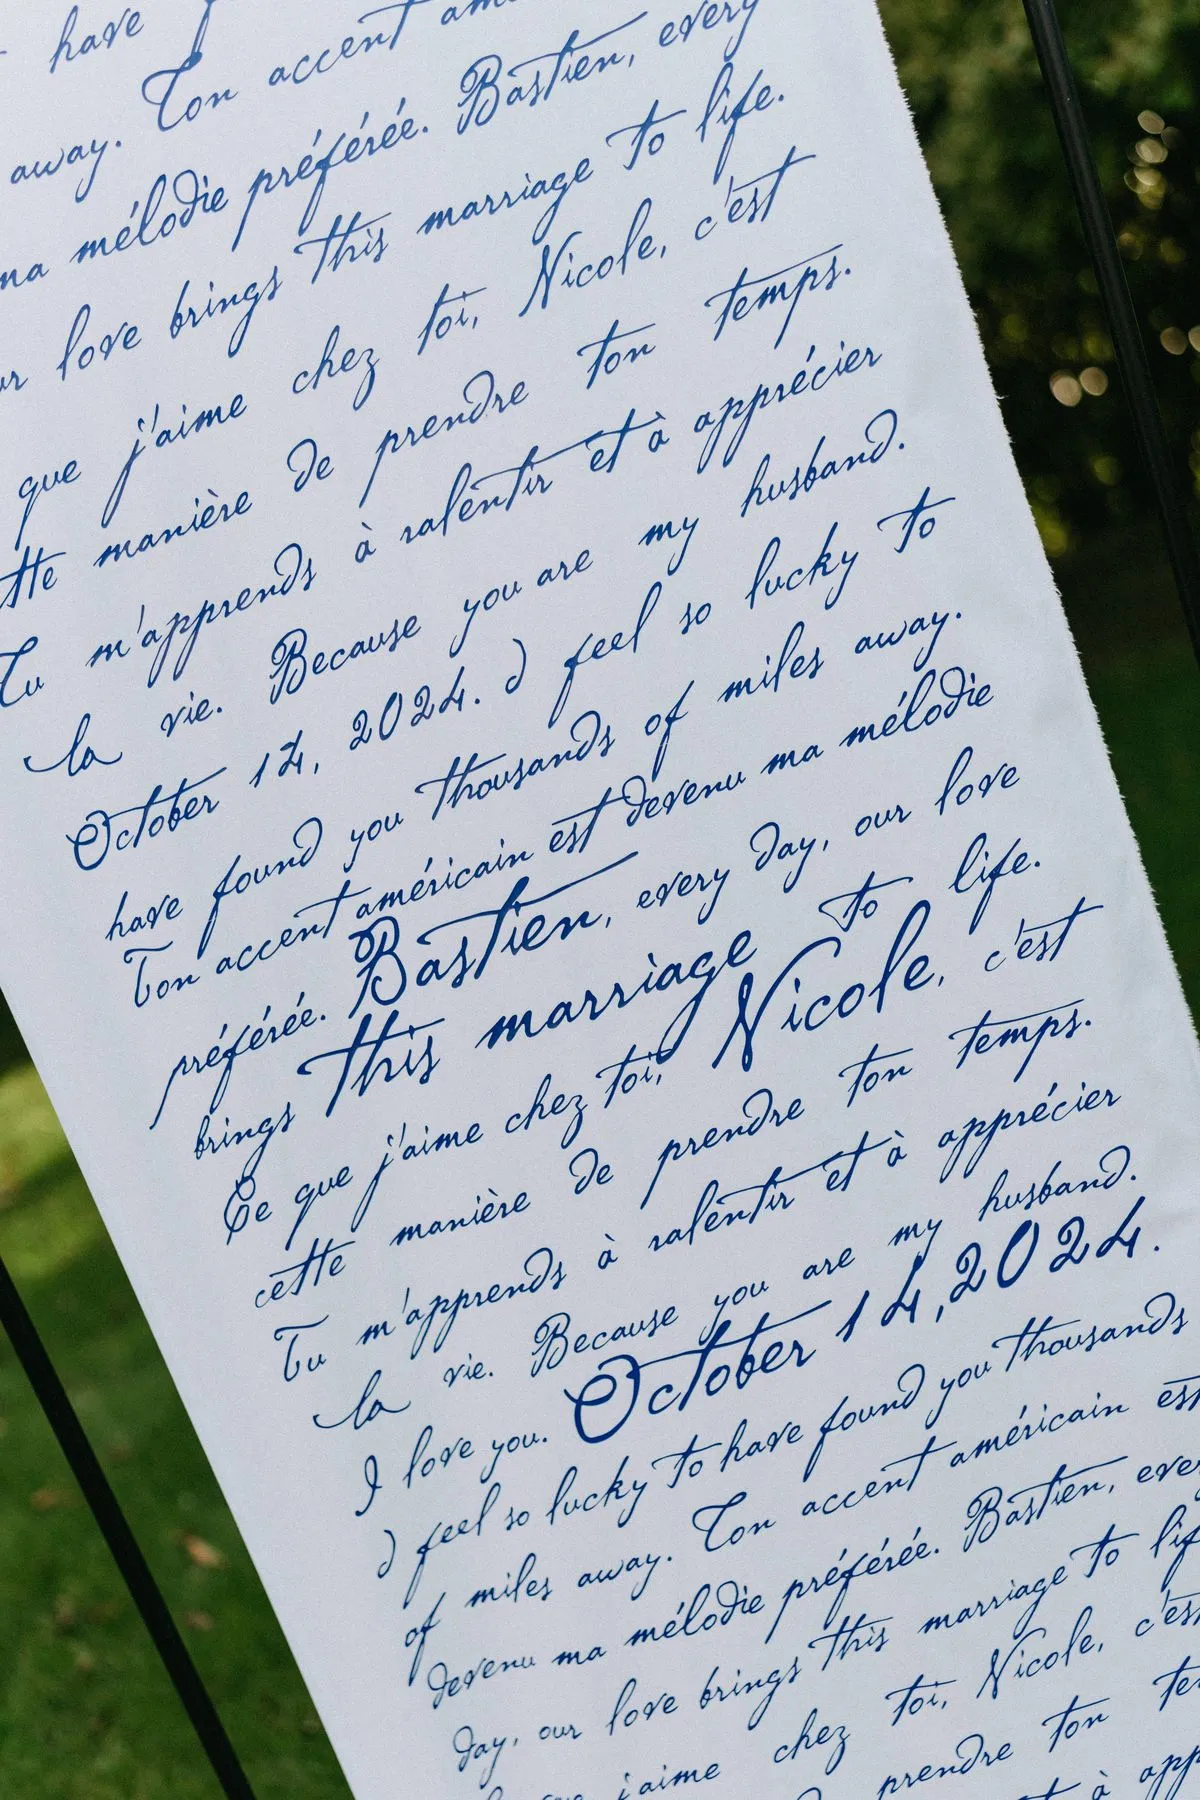 have
away. Ton accent
ma mélodie préférée. Bastien, every
our love brings this marriage to life.
que j'aime chez toi, Nicole, c'est
manière de prendre ton temps.
Tu m'apprends à ralentir et à apprécier
la vie. Because you are my husband.
October 14, 2024. I feel so lucky to
have found you thousands of miles away.
Ton accent américain est devenu ma mélodie
préférée. Bastien, every day, our love
brings this marriage to life.
Ce que j'aime chez toi, Nicole, c'est
cette manière de prendre ton temps.
Tu m'apprends à ralentir et à apprécier
la vie. Because you are my husband.
I love you. October 14, 2024.
I feel so lucky to have found you thousands
of miles away. Ton accent américain est
devenu ma mélodie préférée. Bastien, every
day, our love brings this marriage to
j'aime chez toi, Nicole, c'est
prendre ton
à